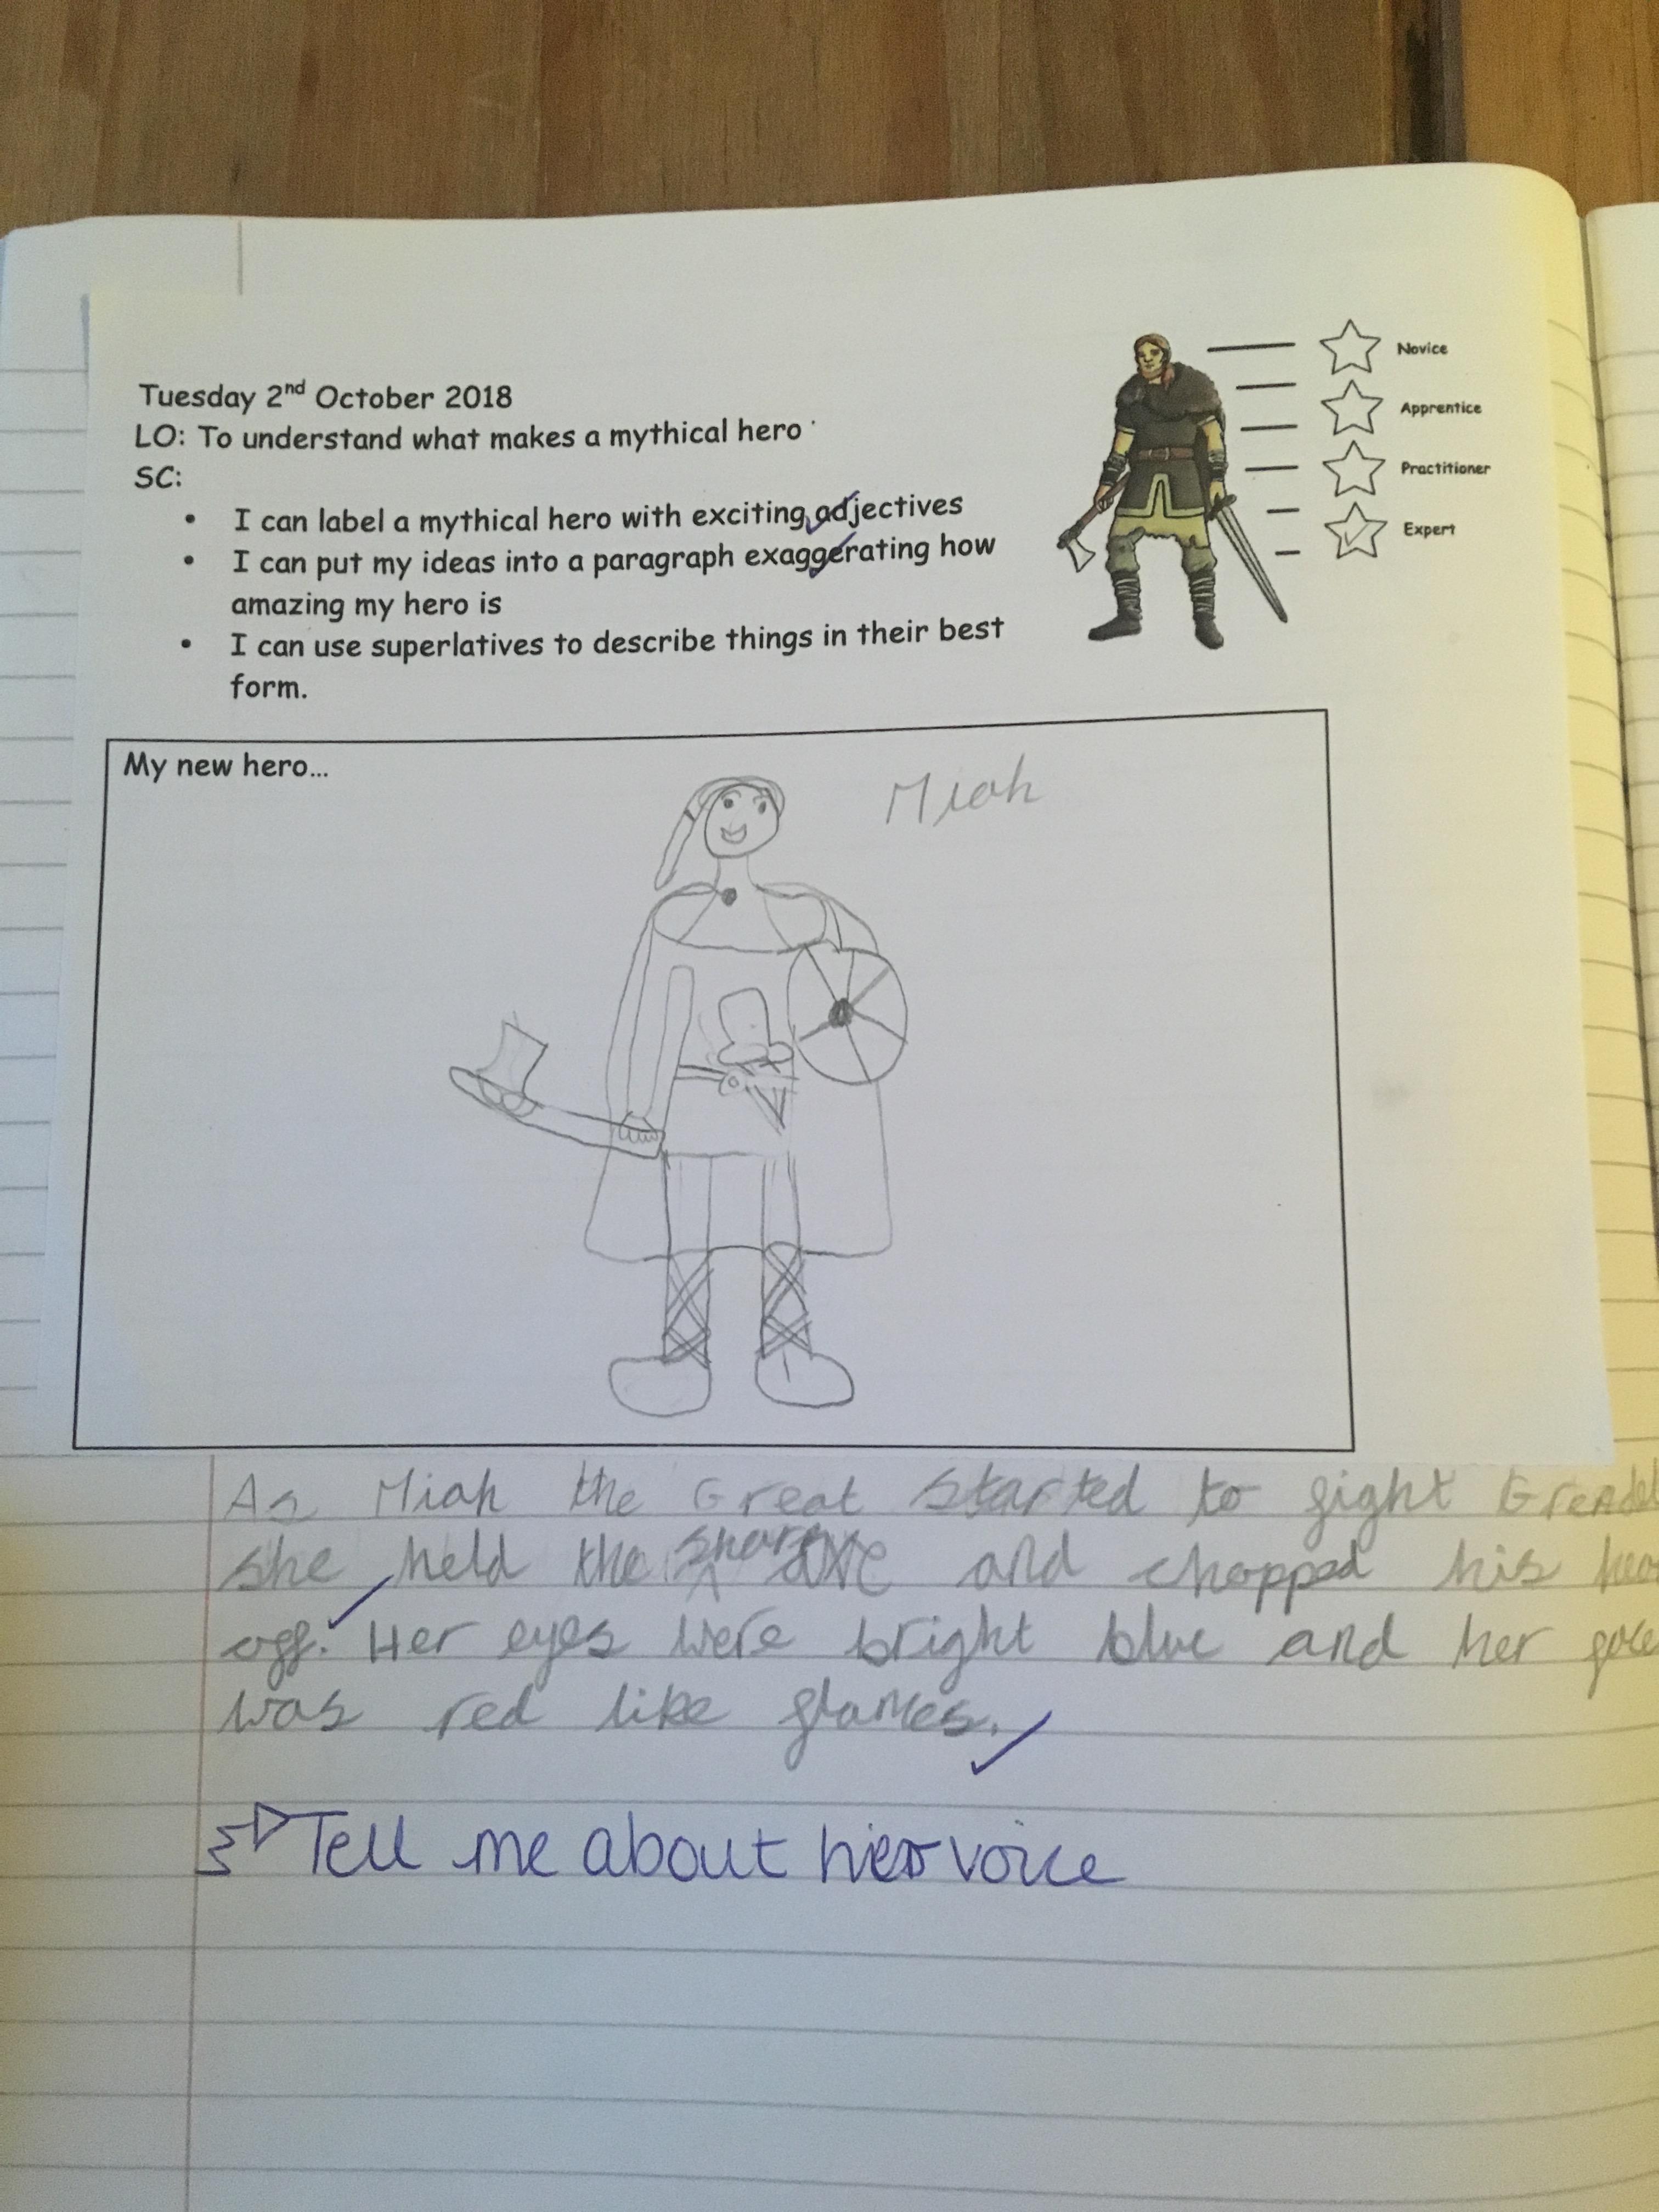 Tuesday 2nd October 2018
LO: To understand what makes a mythical hero
SC:
• I can label a mythical hero with exciting adjectives
• I can put my ideas into a paragraph exaggerating how
amazing my hero is
• I can use superlatives to describe things in their best
form.
Novice
Apprentice
Practitioner
Expert
My new hero...
Miah
As Miah the Great started to fight Grendel
she held the sharp axe and chopped his
off. Her eyes were bright blue and her
was red like flames.
Tell me about her voice